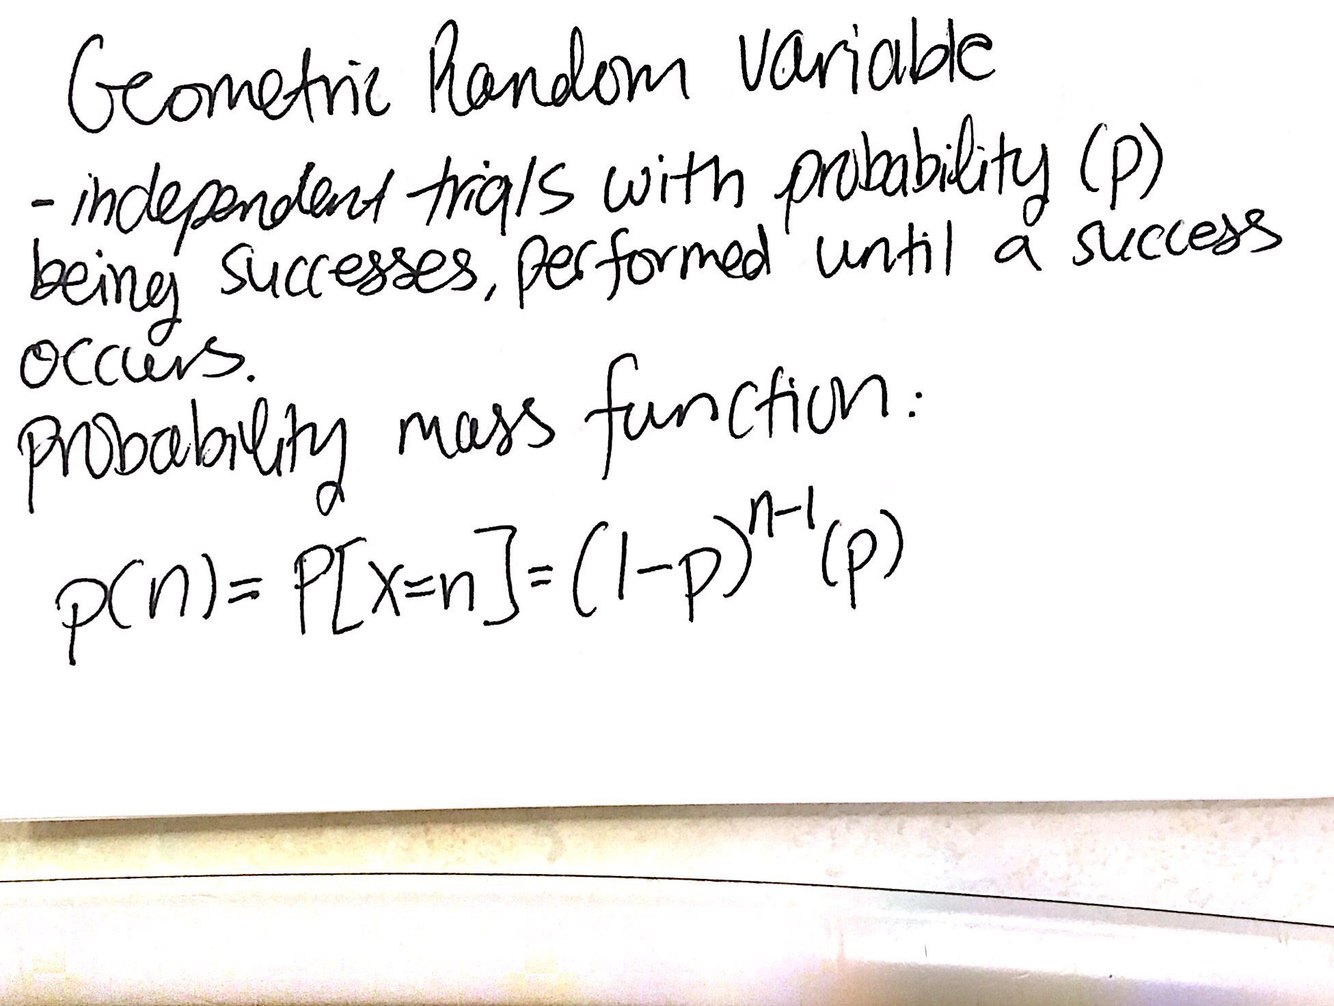 Geometric Random Variable
- independent trials with probability (p)
being successes, performed until a success
occurs.
probability mass function:
p(n) = P[X=n] = (1-p)^{n-1} (p)